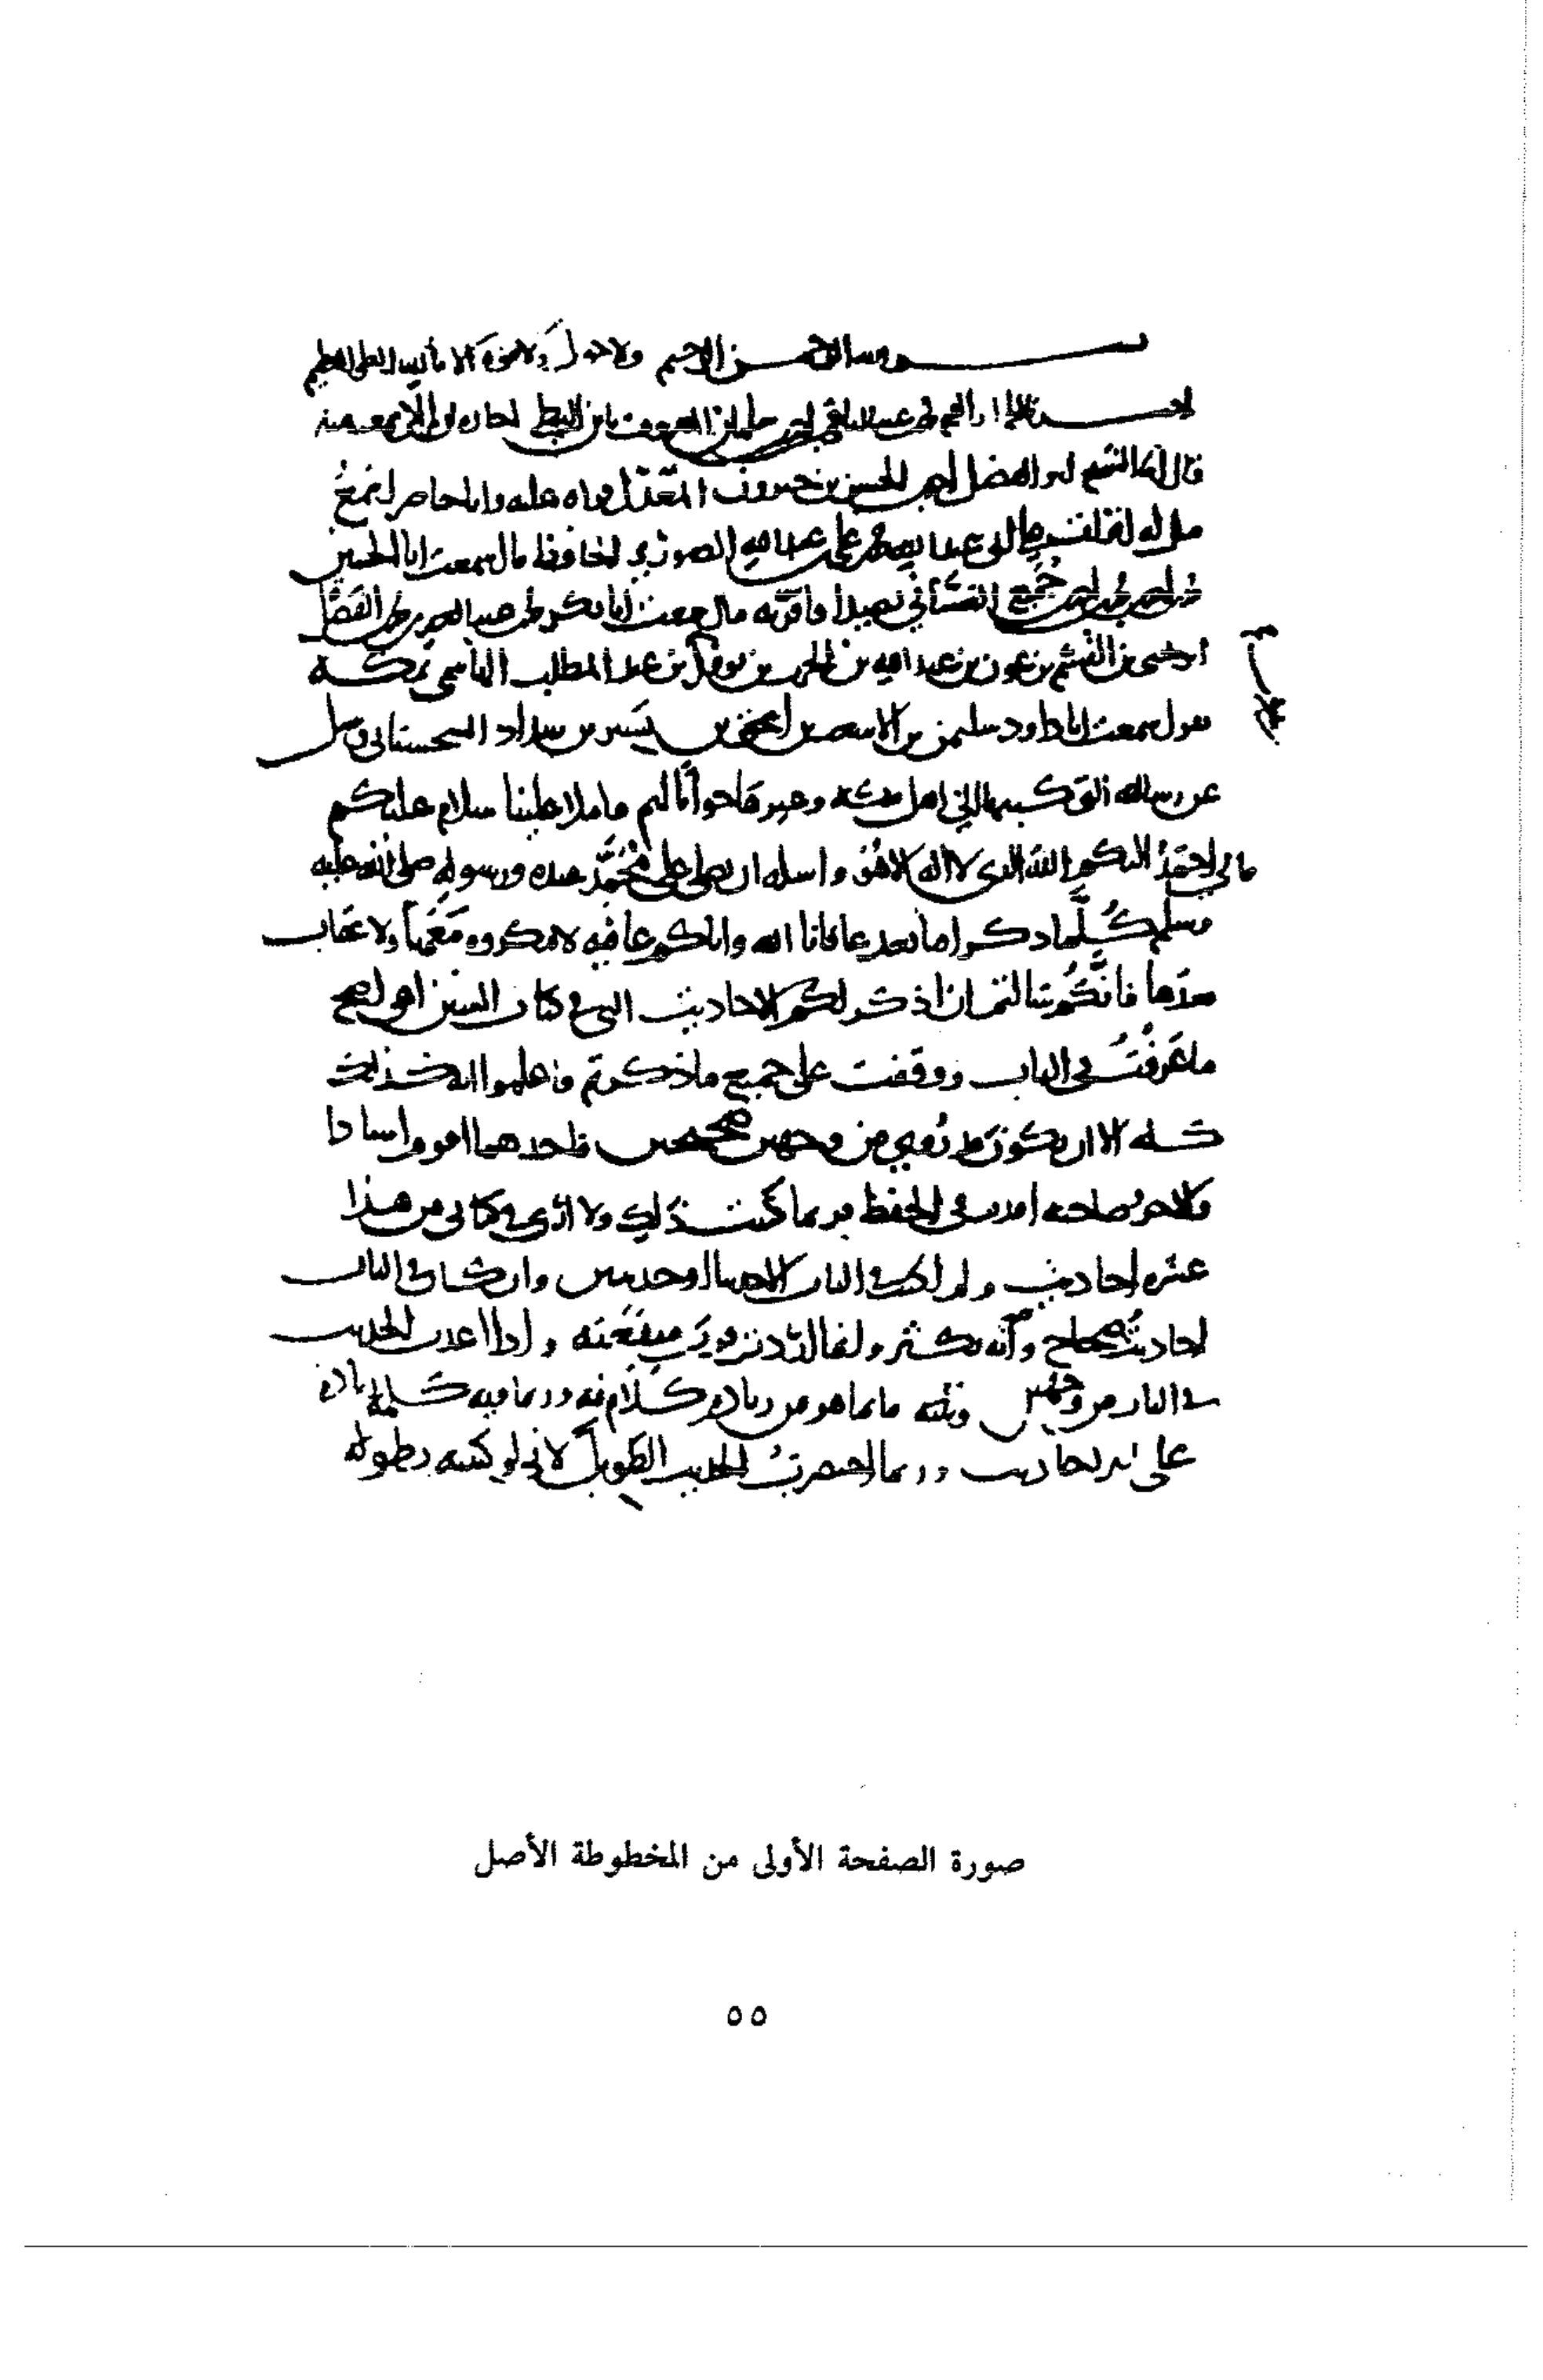 بسم الله الرحمن الرحيم ولا حول ولا قوة الا بالله العلي العظيم
اخبرنا ابو الفتح محمد بن عبد الباقي بن احمد بن سلمان المعروف بابن البطي اجازة ان لم اكن سمعته منه
قال انبا الشيخ ابو الفضل احمد بن الحسن بن خيرون المعدل قراه عليه وانا حاضر اسمع
قيل له اقرات على ابي عبد الله محمد بن علي بن عبد الله الصوري الحافظ قال سمعت ابا الحسين
محمد بن احمد بن محمد بن احمد بن جميع الغساني بصيدا فاقر به قال سمعت ابا بكر محمد بن عبد العزيز بن محمد بن الفضل
ابن يحيى بن القسم بن عون بن عبد الله بن الحرث بن نوفل بن عبد المطلب الهاشمي بمكه
يقول سمعت ابا داود سليمن بن الاشعث بن اسحق بن بشير بن شداد السجستاني وسئل
عن رسالته التي كتبها الى اهل مكه وغيرها جوابا لهم فاملا علينا سلام عليكم
فاني احمد اليكم الله الذي لا اله الا هو واسله ان يصلي على محمد عبده ورسوله صلى الله عليه
وسلم كلما ذكر اما بعد عافانا الله واياكم عافيه لا مكروه معها ولا عقاب
بعدها فانكم سالتم ان اذكر لكم الاحاديث التي في كتاب السنن اهي اصح
ما عرفت في الباب ووقفت على جميع ما ذكرتم فاعلموا انه كذلك
كله الا ان يكون قد روي من وجهين صحيحين فاحدهما اقوم اسنادا
والاخر صاحبه اقدم في الحفظ فربما كتبت ذلك ولا ارى في كتابي من هذا
عشره احاديث ولم اكتب في الباب الا حديثا او حديثين وان كان في الباب
احاديث صحاح فانه يكثر وانما اردت قرب منفعته واذا اعدت الحديث
في الباب من وجهين وثلثه فانما هو من زياده كلام فيه وربما فيه كلمه زياده
على الاحاديث وربما اختصرت الحديث الطويل لاني لو كتبته بطوله
صورة الصفحة الأولى من المخطوطة الأصل
٥٥